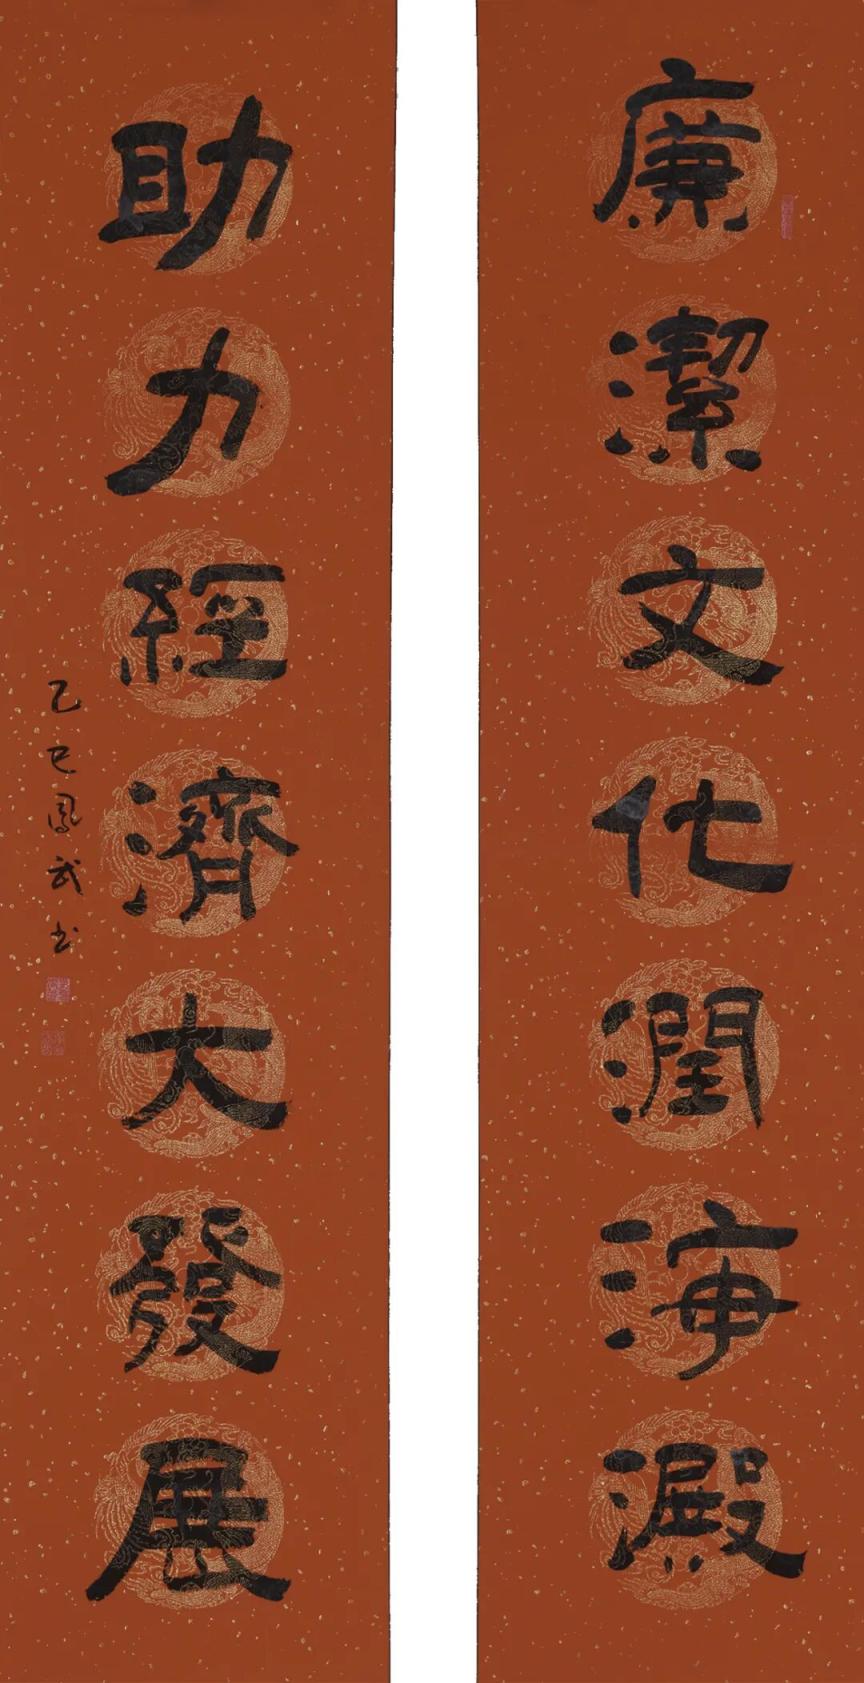 廉潔文化潤海澱
助力經濟大發展
乙巳鳳武书